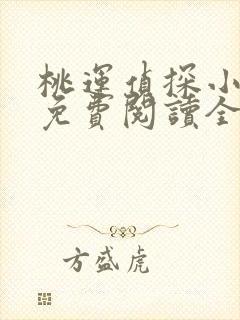 桃運偵探小
免費閱讀全
方盛虎